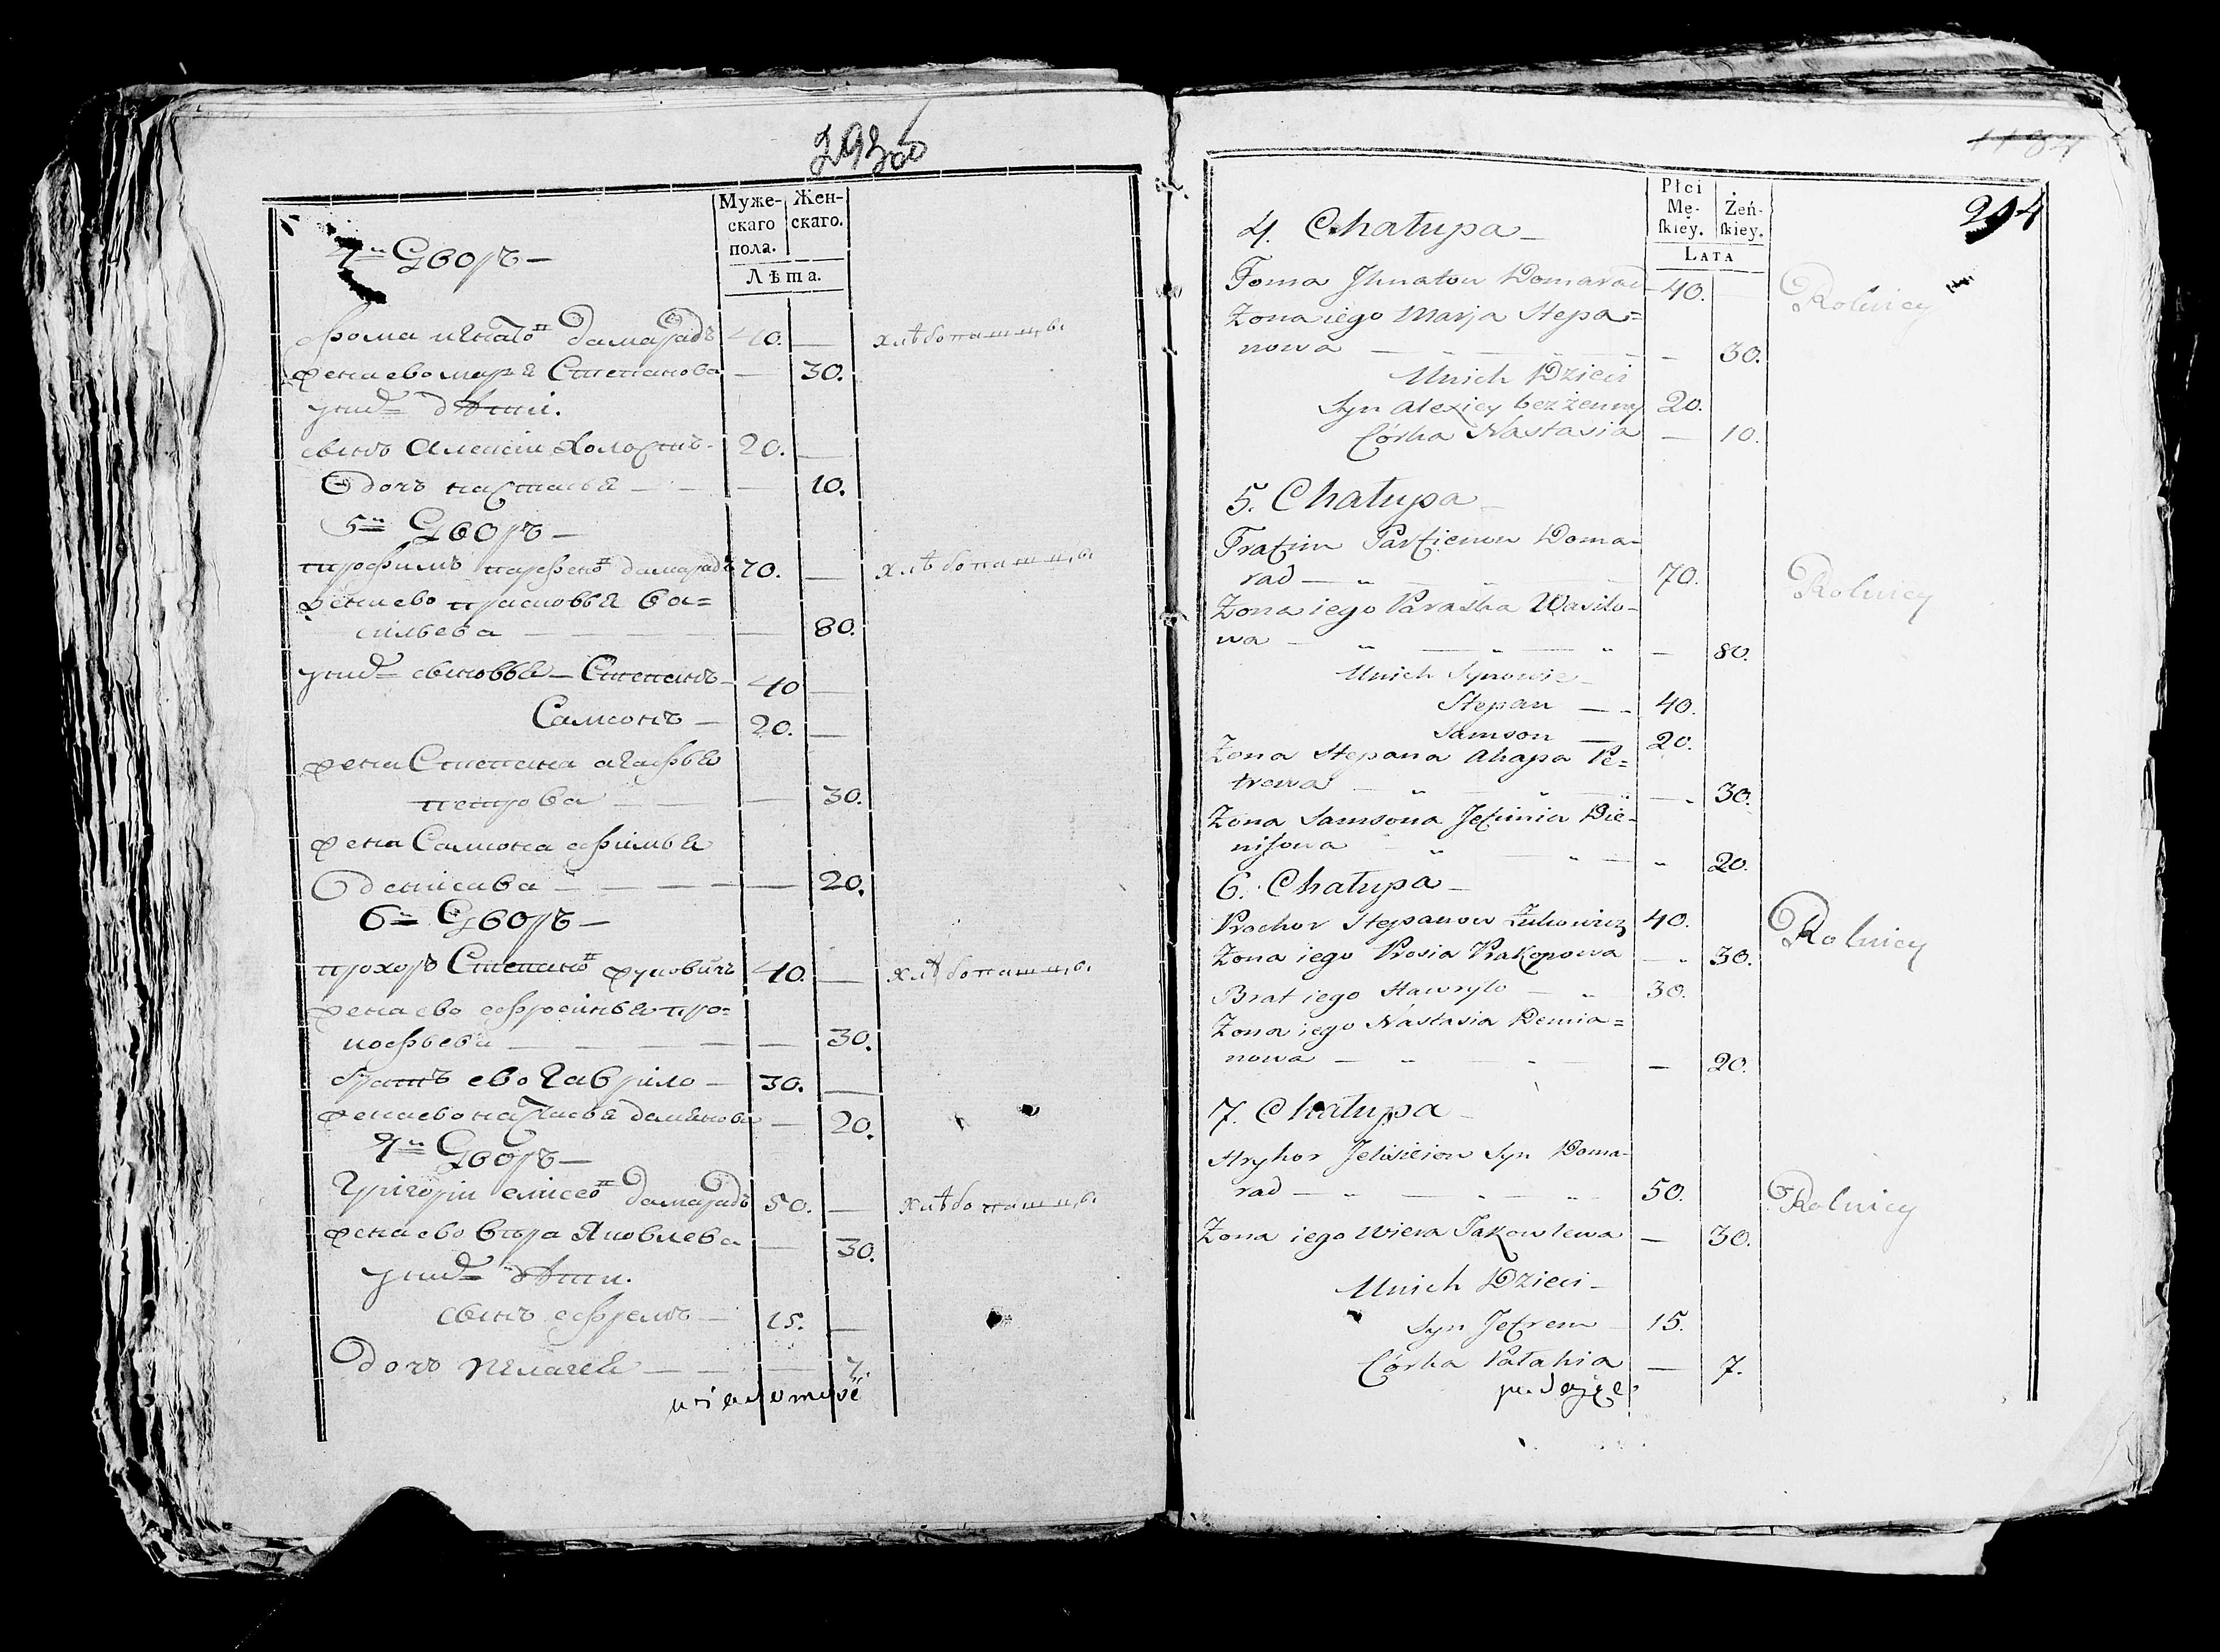 293об
Муже-
скаго
пола.
Жен-
скаго.
Лѣта.
4й Дворъ —
Фома игнатовъ дамарадъ 40. — хлѣбопашцы
жена ево марья Степанова — 30.
у нихъ дѣти.
сынъ Алексѣй Холостъ 20. —
дочь настасья — — — 10.
5й Дворъ —
трофимъ парфеновъ дамарадъ 70. — хлѣбопашцы
жена ево прасковья ва=
сильева — — — — 80.
у нихъ сыновья — Степанъ — 40 —
Самсонъ — 20. —
жена Степана агафья
петрова — — — 30.
жена Самсона ефимья
денисава — — — — 20.
6й Дворъ —
прохоръ Степановъ жуковичъ 40. — хлѣбопашцы
жена ево ефросинья про=
кофьева — — — — — 30.
братъ ево гаврило — 30. —
жена ево настасья дамянова — 20.
7й Дворъ —
Григорiй елисеовъ дамарадъ 50. — хлѣбопашцы
жена ево вѣра Яковлева — 30.
у нихъ дѣти.
сынъ ефремъ — 15. —
дочь пелагея — — — 7.
wiadomość
294
Płci
Mę-
ſkiey.
Żeń-
ſkiey.
LATA
4. Chałupa —
Foma Jhnatow Domarad 40. Rolnicy
Żona iego Marja Stepa=
nowa — — — — 30.
U nich Dzieci
Syn Alexiey bezżenny 20.
Córka Nastasia — 10.
5. Chałupa —
Trafim Parfienow Doma-
rad — „ — „ — 70. Rolnicy
Żona iego Paraska Wasilo-
wa — „ — „ — „ — 80.
U nich Synowie —
Stepan — - 40.
Samson — 20.
Żona Stepana Ahapa Pe=
trowa — „ „ — „ — - 30.
Żona Samsona Jefimia Die-
niſowa „ — „ — „ 20.
6. Chałupa —
Prochor Stepanow Żukowicz 40. Rolnicy
Żona iego Prosia Prakopowa — „ 30.
Brat iego Hawryło — „ 30.
Żona iego Nastasia Demia=
nowa — „ - — 20.
7. Chałupa —
Hryhor Jelisieiow Syn Doma-
rad — „ — „ — „ 50. Rolnicy
Żona iego Wiera Jakowlewa — 30.
U nich Dzieci —
Syn Jefrem — 15.
Córka Pałahia — 7.
podaięć